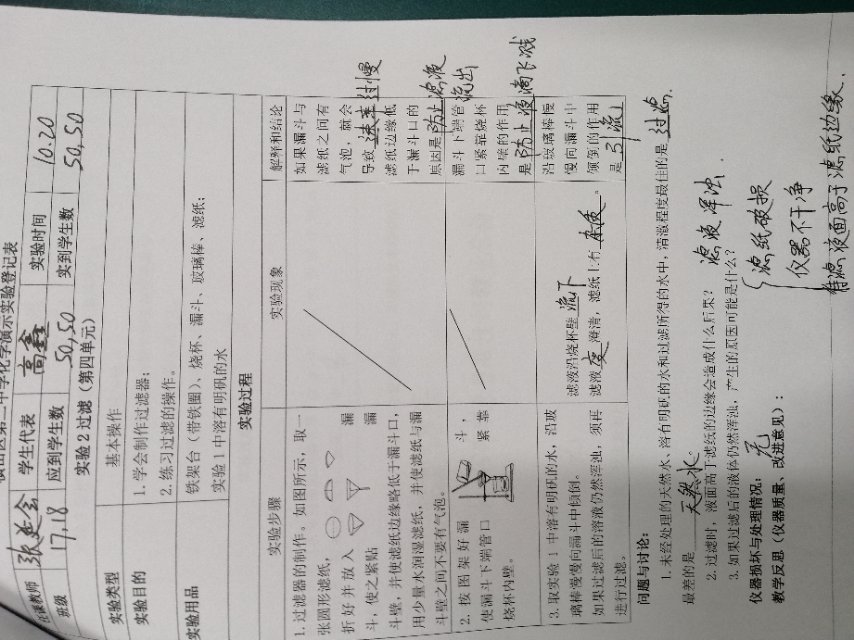 区第二中学化学演示实验登记表
任课教师 张廷会 学生代表 高鑫 实验时间 10.20
班级 17,18 应到学生数 50,50 实到学生数 50,50
实验2 过滤（第四单元）
实验类型 基本操作
实验目的 1. 学会制作过滤器；
2. 练习过滤的操作。
实验用品 铁架台（带铁圈）、烧杯、漏斗、玻璃棒、滤纸；
实验1中溶有明矾的水
实验过程
实验步骤 实验现象 解释和结论
1. 过滤器的制作。如图所示，取一
张圆形滤纸，
折好并放入 漏
斗，使之紧贴 漏
斗壁，并使滤纸边缘略低于漏斗口，
用少量水润湿滤纸，并使滤纸与漏
斗壁之间不要有气泡。
如果漏斗与
滤纸之间有
气泡，就会
导致 速率过慢
滤纸边缘低
于漏斗口的
原因是 防止滤液
流出
2. 按图架好漏 斗，
使漏斗下端管口 紧靠
烧杯内壁。
漏斗下端管
口紧靠烧杯
内壁的作用
是 防止液滴飞溅
3. 取实验1中溶有明矾的水，沿玻
璃棒慢慢向漏斗中倾倒。
如果过滤后的溶液仍然浑浊，须再
进行过滤。
滤液沿烧杯壁 流下
滤液 变 澄清，滤纸上有 杂质 。
沿玻璃棒慢
慢向漏斗中
倾倒的作用
是 引流
问题与讨论：
1. 未经处理的天然水、溶有明矾的水和过滤所得的水中，清澈程度最佳的是 过滤，
最差的是 天然水
2. 过滤时，液面高于滤纸的边缘会造成什么后果？ 滤液浑浊．
3. 如果过滤后的液体仍然浑浊，产生的原因可能是什么？
滤纸破损
仪器不干净
待滤液面高于滤纸边缘．
仪器损坏与处理情况： 无
教学反思（仪器质量、改进意见）：